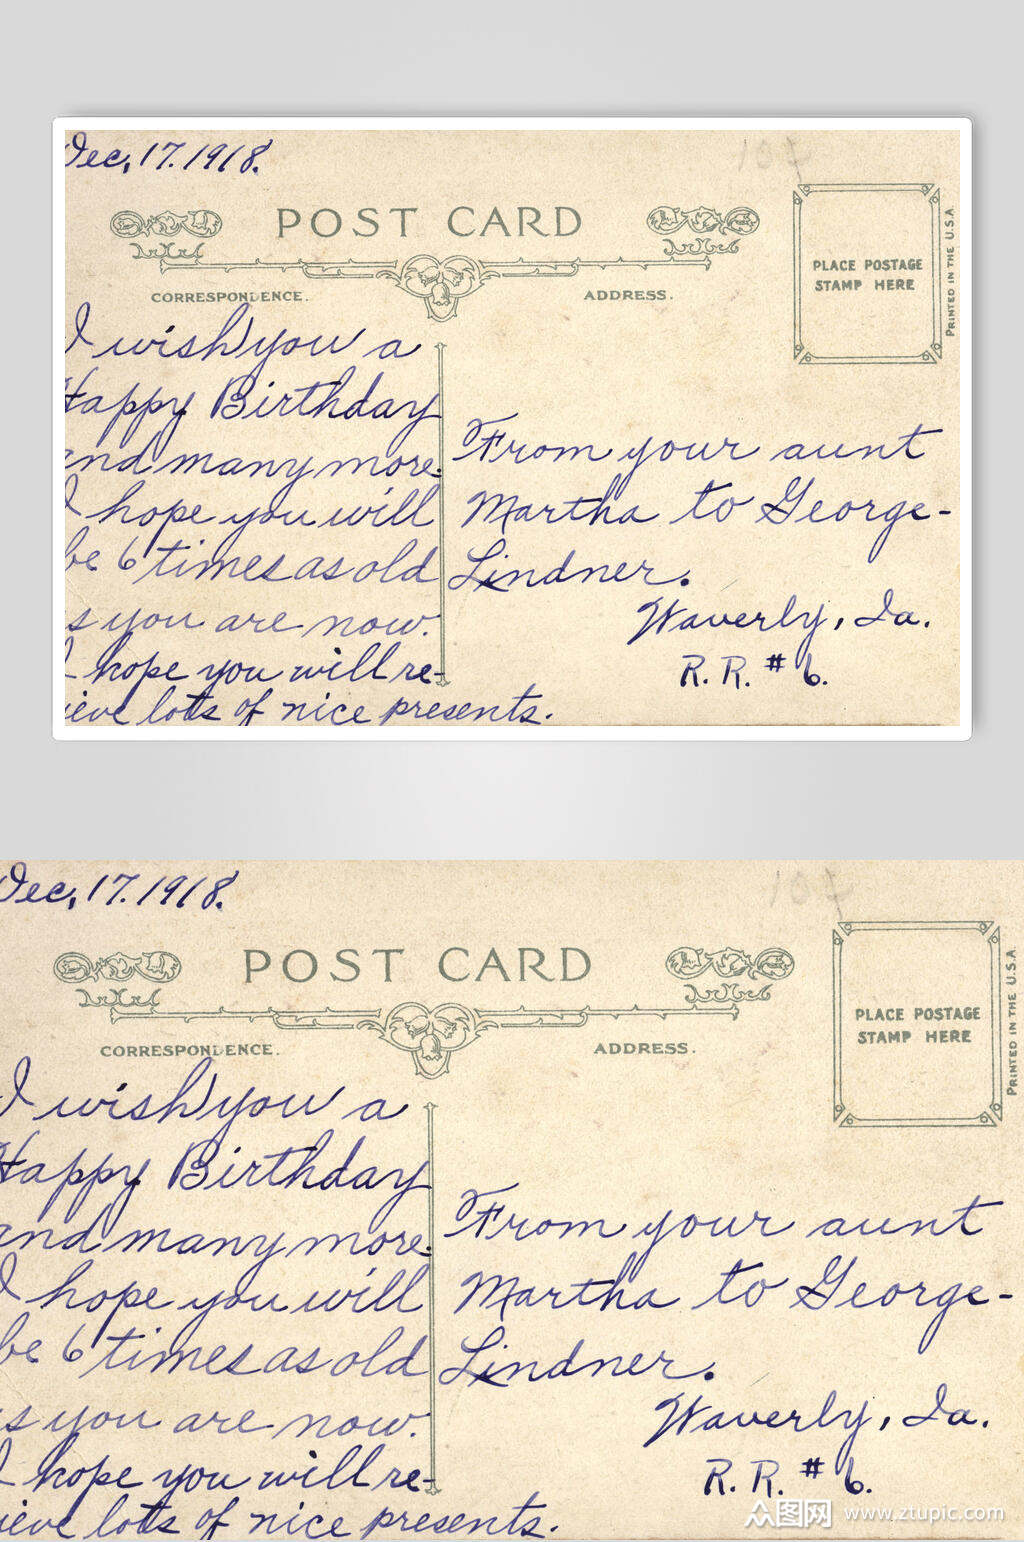 Dec, 17. 1918.
POST CARD
CORRESPONDENCE.
ADDRESS.
PLACE POSTAGE
STAMP HERE
PRINTED IN THE U.S.A
I wish you a
Happy Birthday
and many more.
I hope you will
be 6 times as old
as you are now.
I hope you will re-
ieve lots of nice presents.
From your aunt
Martha to George-
Lindner.
Waverly, Ia.
R. R. # 6.
Dec, 17. 1918.
POST CARD
CORRESPONDENCE.
ADDRESS.
PLACE POSTAGE
STAMP HERE
PRINTED IN THE U.S.A
I wish you a
Happy Birthday
and many more.
I hope you will
be 6 times as old
as you are now.
I hope you will re-
ieve lots of nice presents.
From your aunt
Martha to George-
Lindner.
Waverly, Ia.
R. R. # 6.
众图网 www.ztupic.com